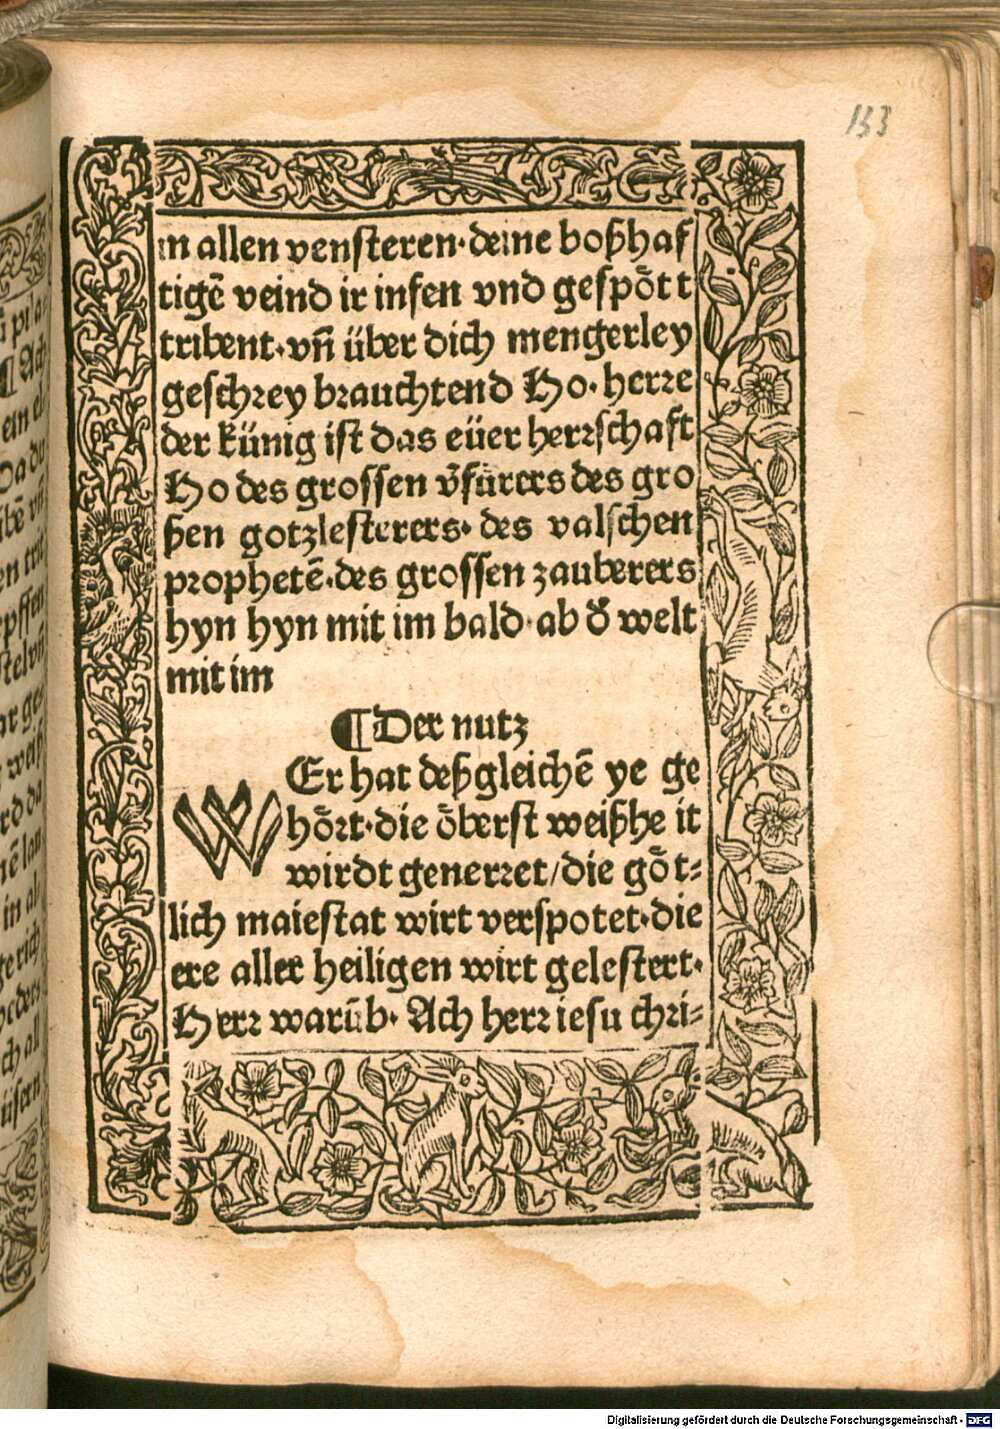 133
in allen vensteren·deine boßhaf
tigē veind ir insen vnd gespõtt
tribent·vn̄ über dich mengerley
geschrey brauchtend Ho·herre
der künig ist das eüer herrschaft
Ho des grossen v̄fürers des gro
ßen gotzlesterers·des valschen
prophetē·des grossen zauberers
hyn hyn mit im bald·ab d̄ welt
mit im
¶Der nutz
WEr hat deßgleichē ye ge
hõrt·die õberst weißheit
wirdt generret/die gõt⸗
lich maiestat wirt verspotet·die
ere aller heiligen wirt gelestert·
Herr warūb·Ach herr iesu chri⸗
Digitalisierung gefördert durch die Deutsche Forschungsgemeinschaft - DFG